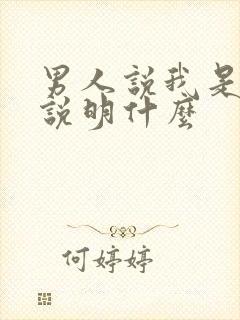 男人說我是
說明什麼
何婷婷